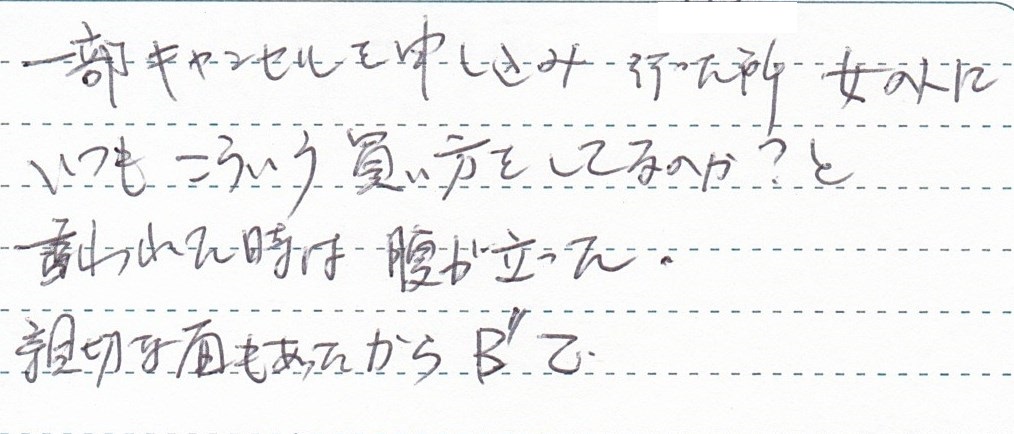 一部キャンセルを申し込み 行った所 女の人に
いつも こういう 買い方を してるのか?と
言われた時は 腹が立った.
親切な面もあったから B"で.